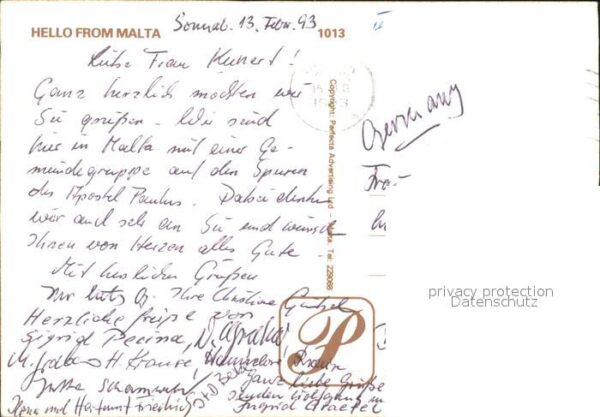 HELLO FROM MALTA
Sonnab. 13. Febr. 93
1013
Liebe Frau Kunert!
Ganz herzlich möchten wir
Sie grüßen. Wir sind
hier in Malta mit einer Ge-
meindegruppe auf den Spuren
des Apostel Paulus. Dabei denken
wir auch sehr an Sie und wünschen
Ihnen von Herzen alles Gute.
Mit herzlichen Grüßen
Ihre Christine
Herzliche Grüße von
Sigrid
H. Krause Hannelore
Jutta
Ganz liebe Grüße
senden
Ilona und Hartmut
Ingrid
Copyright: Perfecta Advertising Ltd - Malta. Tel: 225068
P
Germany
Frau
privacy protection
Datenschutz